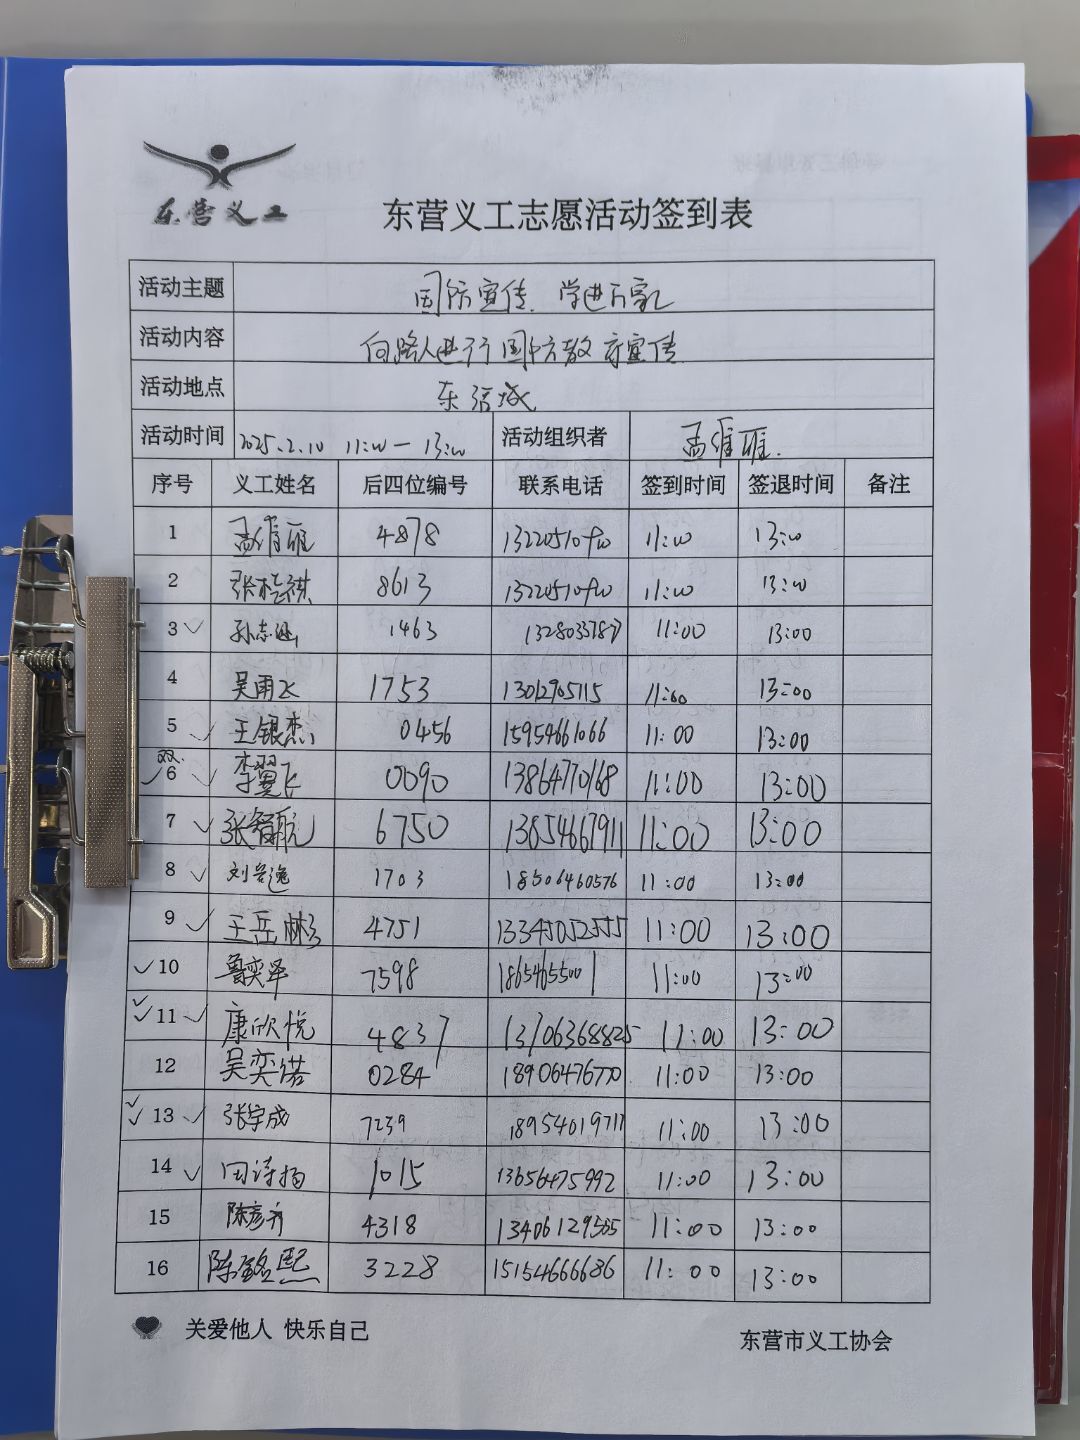 东营义工
东营义工志愿活动签到表
活动主题 国防宣传 学进万家
活动内容 向路人进行国防教育宣传
活动地点
活动时间 2025.2.10 11:00 — 13:00 活动组织者
序号 义工姓名 后四位编号 联系电话 签到时间 签退时间 备注
1 4878 11:00 13:00
2 8613 11:00 13:00
3 1463 11:00 13:00
4 吴雨飞 1753 13012905115 11:00 13:00
5 王银杰 0456 15954661066 11:00 13:00
双.
6 李翼飞 0090 13864770168 11:00 13:00
7 张智航 6750 13854667911 11:00 13:00
8 1703 18506460576 11:00 13:00
9 王岳彬 4751 13345052555 11:00 13:00
10 鲁奕泽 7598 18654655001 11:00 13:00
11 康欣悦 4837 13706368825 11:00 13:00
12 吴奕诺 0284 18906476770 11:00 13:00
13 张宇成 7239 18954019711 11:00 13:00
14 田诗扬 1015 13656475992 11:00 13:00
15 陈彦齐 4318 13406129565 11:00 13:00
16 陈铭熙 3228 15154666686 11:00 13:00
关爱他人 快乐自己
东营市义工协会